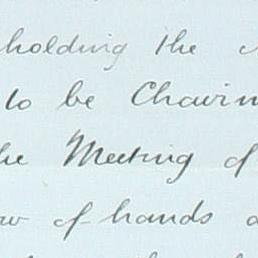 holding the
to be Chairm
he Meeting of
ow of hands